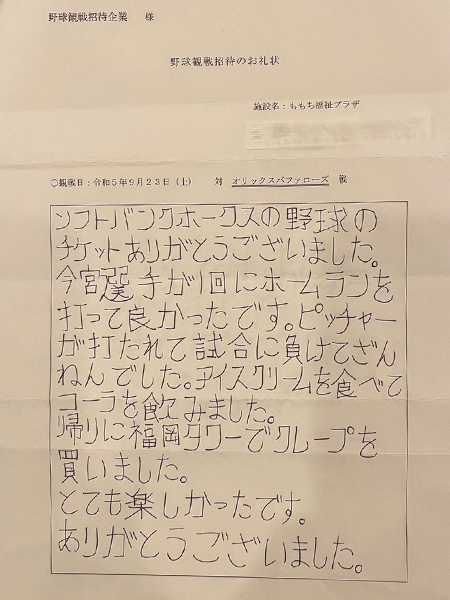 野球観戦招待企業 様
野球観戦招待のお礼状
施設名：ももち福祉プラザ
○観戦日：令和5年9月23日（土） 対 オリックスバファローズ 戦
ソフトバンクホークスの野球の
チケットありがとうございました。
今宮選手が1回にホームランを
打って良かったです。ピッチャー
が打たれて試合に負けてざん
ねんでした。アイスクリームを食べて
コーラを飲みました。
帰りに福岡タワーでクレープを
買いました。
とても楽しかったです。
ありがとうございました。